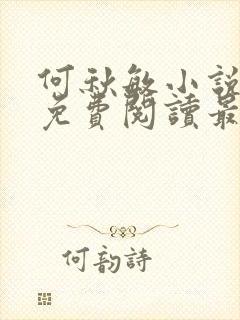 何秋敏小說
免費閱讀最
何韵詩